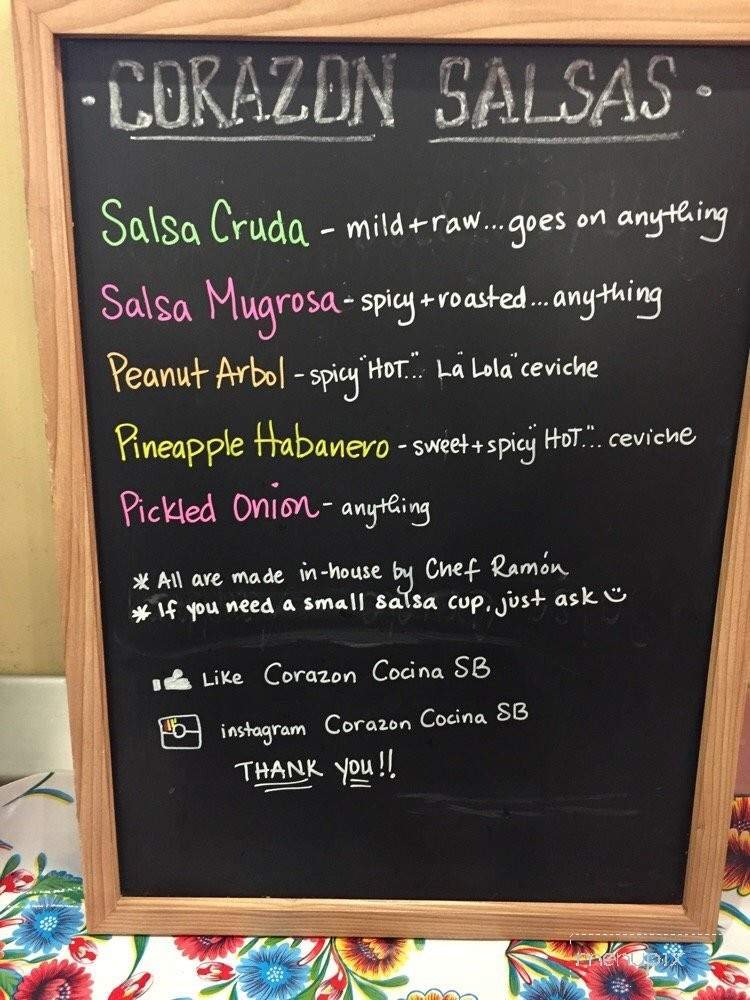 · CORAZON SALSAS ·
Salsa Cruda - mild + raw... goes on anything
Salsa Mugrosa - spicy + roasted... anything
Peanut Arbol - spicy "HOT"... "La Lola" ceviche
Pineapple Habanero - sweet + spicy "HOT"... ceviche
Pickled Onion - anything
* All are made in-house by Chef Ramón
* If you need a small salsa cup, just ask
Like Corazon Cocina SB
instagram Corazon Cocina SB
THANK you!!
menupix